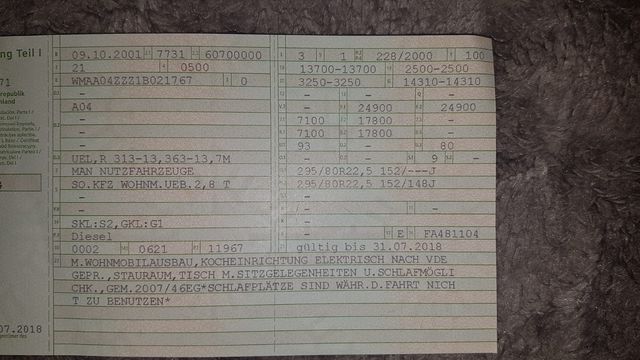 ng Teil I
09.10.2001 7731 60700000 3 1 228/2000 100
21 0500 13700-13700 2500-2500
71 WMAA04ZZZ1B021767 0 3250-3250 14310-14310
republik
- - -
A04 - 24900 24900
- 7100 17800 -
- 7100 17800 -
- 93 - 80
UEL,R 313-13,363-13,7M - 9 -
MAN NUTZFAHRZEUGE 295/80R22,5 152/---J
SO.KFZ WOHNM.UEB.2,8 T 295/80R22,5 152/148J
- -
- -
SKL:S2,GKL:G1 -
Diesel - E FA481104
0002 0621 11967 gültig bis 31.07.2018
M.WOHNMOBILAUSBAU,KOCHEINRICHTUNG ELEKTRISCH NACH VDE
GEPR.,STAURAUM,TISCH M.SITZGELEGENHEITEN U.SCHLAFMÖGLI
CHK.,GEM.2007/46EG*SCHLAFPLÄTZE SIND WÄHR.D.FAHRT NICH
T ZU BENUTZEN*
07.2018